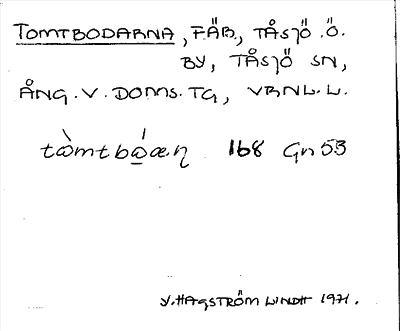 TOMTBODARNA, FÄB., TÅSJÖ Ö.
BY, TÅSJÖ SN,
ÅNG. V. DOMS. TG, VBNL. L.
168 Gn 53
Y. HAGSTRÖM LINDH 1971.